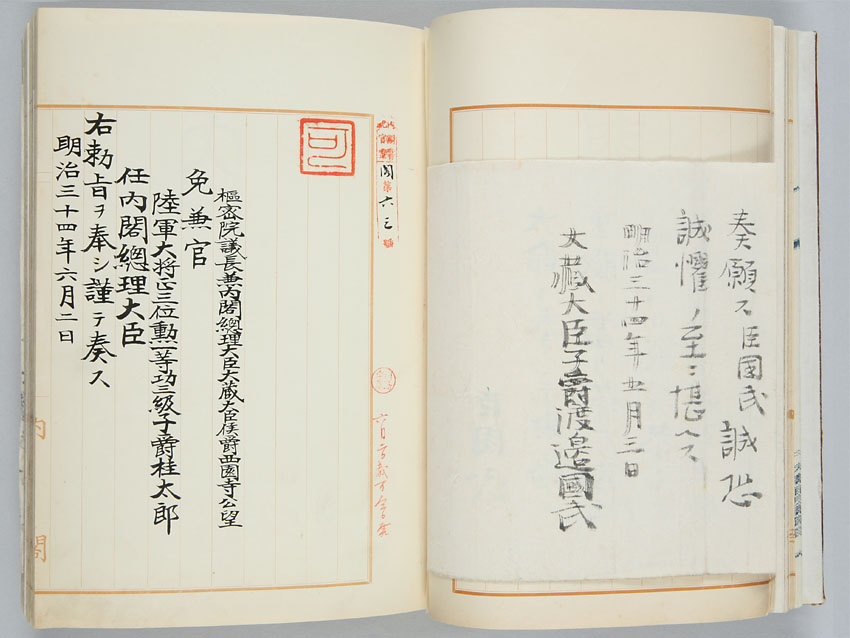 奏願ス臣國武誠恐
誠懼ノ至ニ堪ヘス
明治三十四年五月三日
大藏大臣子爵渡邉國武
閣第六三
可
樞密院議長兼內閣總理大臣大藏大臣侯爵西園寺公望
免兼官
陸軍大将正三位勲一等功三級子爵桂太郎
任內閣總理大臣
右勅旨ヲ奉シ謹テ奏ス
明治三十四年六月二日
內閣